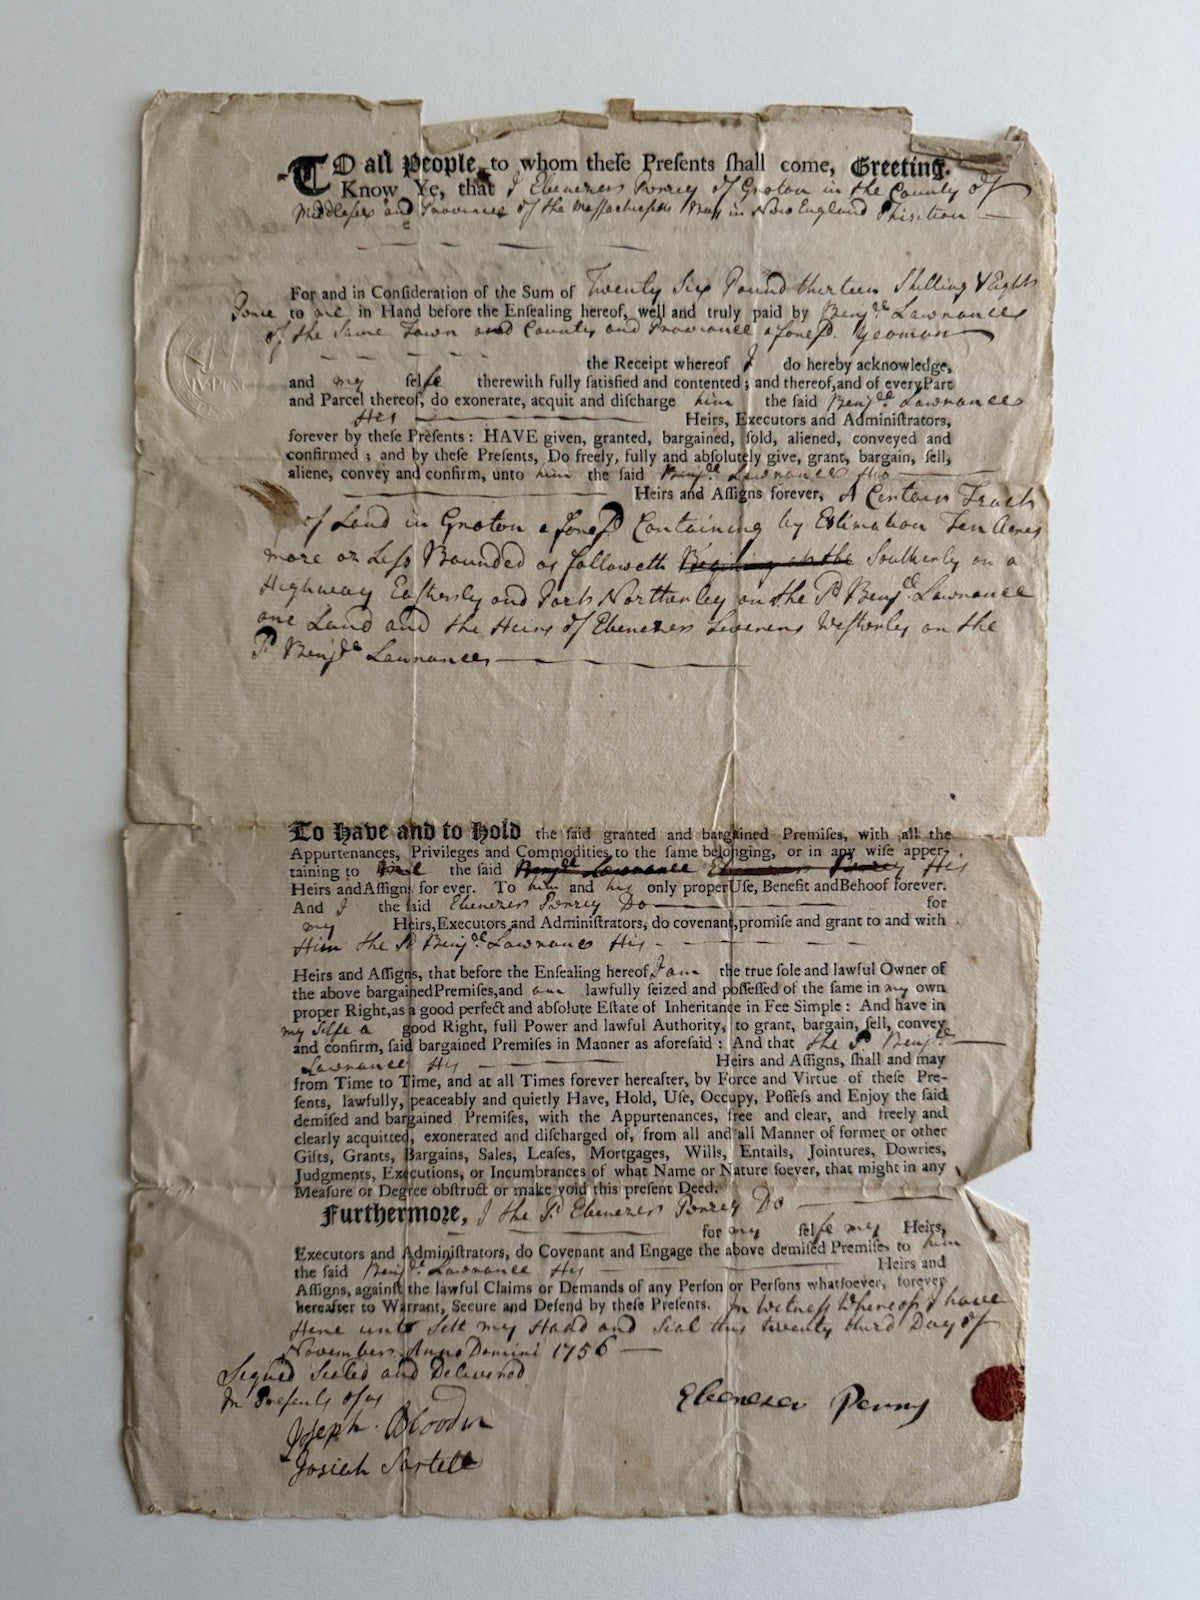 TO all People to whom theſe Preſents ſhall come, Greeting.
Know Ye, that I Ebenezer of Groton in the County of
Middlesex and Province of the Massachusetts Bay in New England
For and in Conſideration of the Sum of Twenty Six Pound thirteen Shilling & Eight
Pence to me in Hand before the Enſealing hereof, well and truly paid by Benjᵃ Lawrance
of the Same Town and County and Proviance aforesᵈ. Yeoman
the Receipt whereof I do hereby acknowledge,
and my ſelfe therewith fully ſatisfied and contented; and thereof, and of every Part
and Parcel thereof, do exonerate, acquit and diſcharge him the ſaid Benjᵃ Lawrance
His Heirs, Executors and Adminiſtrators,
forever by theſe Preſents: HAVE given, granted, bargained, ſold, aliened, conveyed and
confirmed; and by theſe Preſents, Do freely, fully and abſolutely give, grant, bargain, ſell,
aliene, convey and confirm, unto him the ſaid Benjᵃ Lawrance His
Heirs and Aſſigns forever, A Certain Tract
of Land in Groton aforesᵈ Containing by Estimation Ten Acres
more or Less Bounded as followeth Southerly on a
Highway Easterly and Northerley on the Sᵈ Benjᵃ Lawrance
one Land and the Heirs of Ebenezer Westerley on the
Sᵈ Benjᵃ Lawrances
To Have and to Hold the ſaid granted and bargained Premiſes, with all the
Appurtenances, Privileges and Commodities to the ſame belonging, or in any wiſe apper-
taining to the ſaid Benjᵃ Lawrance Ebenezer His
Heirs and Aſſigns for ever. To him and his only proper Uſe, Benefit and Behoof forever.
And I the ſaid Ebenezer Do for
my Heirs, Executors and Adminiſtrators, do covenant, promiſe and grant to and with
Him the Sᵈ Benjᵃ Lawrance His
Heirs and Aſſigns, that before the Enſealing hereof I am the true ſole and lawful Owner of
the above bargained Premiſes, and am lawfully ſeized and poſſeſſed of the ſame in my own
proper Right, as a good perfect and abſolute Eſtate of Inheritance in Fee Simple: And have in
my Selfe a good Right, full Power and lawful Authority, to grant, bargain, ſell, convey
and confirm, ſaid bargained Premiſes in Manner as aforeſaid: And that the Sᵈ Benjᵃ
Lawrance His Heirs and Aſſigns, ſhall and may
from Time to Time, and at all Times forever hereafter, by Force and Virtue of theſe Pre-
ſents, lawfully, peaceably and quietly Have, Hold, Uſe, Occupy, Poſſeſs and Enjoy the ſaid
demiſed and bargained Premiſes, with the Appurtenances, free and clear, and freely and
clearly acquitted, exonerated and diſcharged of, from all and all Manner of former or other
Gifts, Grants, Bargains, Sales, Leaſes, Mortgages, Wills, Entails, Jointures, Dowries,
Judgments, Executions, or Incumbrances of what Name or Nature ſoever, that might in any
Meaſure or Degree obſtruct or make void this preſent Deed.
Furthermore, I the Sᵈ Ebenezer Do
for my ſelfe my Heirs,
Executors and Adminiſtrators, do Covenant and Engage the above demiſed Premiſes to him
the ſaid Benjᵃ Lawrance His Heirs and
Aſſigns, againſt the lawful Claims or Demands of any Perſon or Perſons whatſoever, forever
hereafter to Warrant, Secure and Defend by theſe Preſents. In Witness Whereof I have
Here unto Sett my Hand and Seal this twenty third Day of
November Anno Domini 1756
Signed Sealed and Delivered
In Presents of us
Ebenezer
Joseph Blood
Josiah Sartell